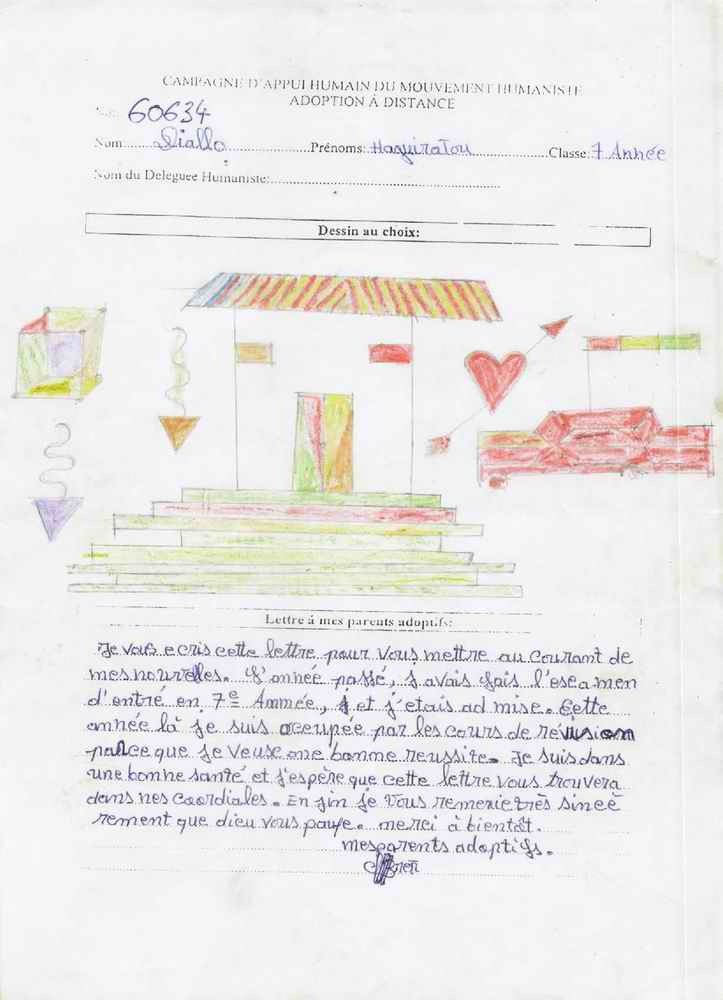 CAMPAGNE D'APPUI HUMAIN DU MOUVEMENT HUMANISTE
ADOPTION À DISTANCE
60634
Nom......Diallo......Prénoms: Haguiratou......Classe: 7 Année
Nom du Deleguée Humaniste:......
Dessin au choix:
Lettre á mes parents adoptifs:
Je vous ecris cette lettre pour vous mettre au courant de
mes nouvelles. L'année passé, j avais fais l'esea men
d'entré en 7e Ammée, j et j'etais ad mise. Cette
année là je suis occupée par les cours de révision
palce que je veuse one bonne reussite. Je suis dans
une bonne santé et j'espère que cette lettre vous trouvera
dans nes coordiales. En fin je vous remerie très sinceè
rement que dieu vous paye. merci à bientôt.
mes parents adoptifs.